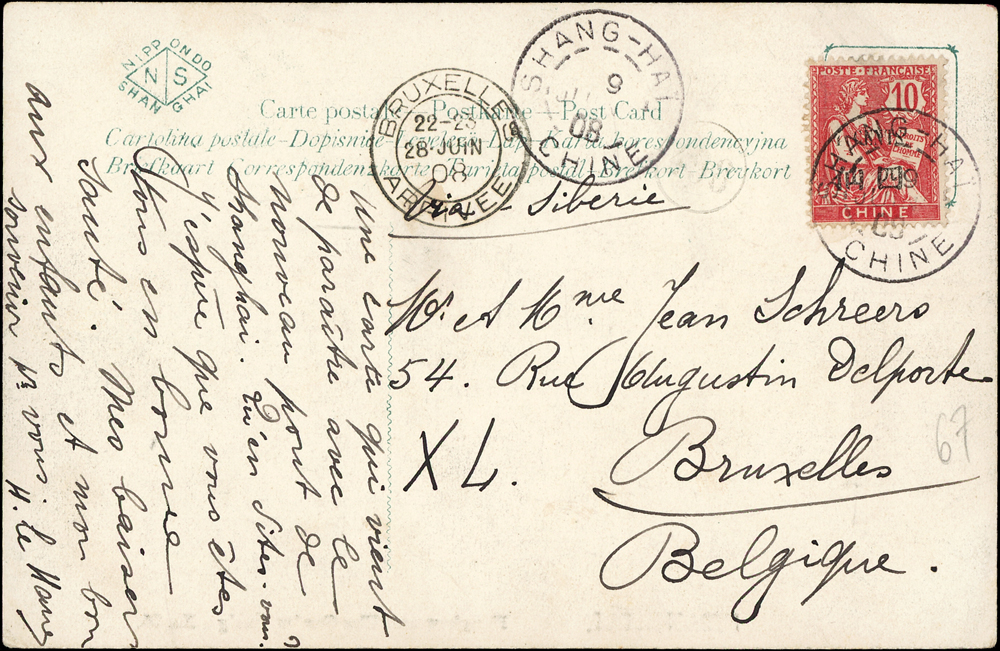 NIPPONDO
N S
SHANGHAI
Carte postale — Postkarte — Post Card
Cartolina postale - Dopisnice - korespondencyjna
Briefkaart - Correspondenzkarte - Tarjeta postal - Brevkort - Brevkort
BRUXELLES
22-23
28 JUIN
08
ARRIVÉE
SHANG-HAI
9
08
CHINE
POSTE FRANÇAISE
10
CHINE
SHANG-HAI
CHINE
via Sibérie
Mr. et Mme Jean Schreers
54. Rue Augustin Delporte
XL.
Bruxelles
Belgique.
67
Une carte qui vient
de paraître avec le
nouveau pont de
Shanghai. Qu'en dites-vous?
J'espère que vous êtes
tous en bonne
santé. Mes baisers
aux enfants et mon bon
souvenir pr vous. H. le